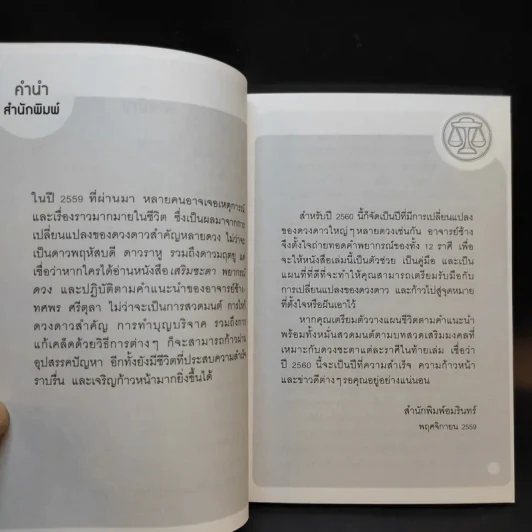 คำนำ
สำนักพิมพ์
ในปี 2559 ที่ผ่านมา หลายคนอาจเจอเหตุการณ์
และเรื่องราวมากมายในชีวิต ซึ่งเป็นผลมาจากการ
เปลี่ยนแปลงของดวงดาวสำคัญหลายดวง ไม่ว่าจะ
เป็นดาวพฤหัสบดี ดาวราหู รวมถึงดาวมฤตยู แต่
เชื่อว่าหากใครได้อ่านหนังสือ เสริมชะตา พยากรณ์
ดวง และปฏิบัติตามคำแนะนำของอาจารย์ช้าง
ทศพร ศรีตุลา ไม่ว่าจะเป็นการสวดมนต์ การไหว้
ดวงดาวสำคัญ การทำบุญบริจาค รวมถึงการ
แก้เคล็ดด้วยวิธีการต่างๆ ก็จะสามารถก้าวผ่าน
อุปสรรคปัญหา อีกทั้งยังมีชีวิตที่ประสบความสำเร็จ
ราบรื่น และเจริญก้าวหน้ามากยิ่งขึ้นได้
สำหรับปี 2560 นี้ก็จัดเป็นปีที่มีการเปลี่ยนแปลง
ของดวงดาวใหญ่ๆหลายดวงเช่นกัน อาจารย์ช้าง
จึงตั้งใจถ่ายทอดคำพยากรณ์ของทั้ง 12 ราศี เพื่อ
จะให้หนังสือเล่มนี้เป็นตัวช่วย เป็นคู่มือ และเป็น
แผนที่ที่ดีที่จะทำให้คุณสามารถเตรียมรับมือกับ
การเปลี่ยนแปลงของดวงดาว และก้าวไปสู่จุดหมาย
ที่ตั้งใจหรือฝันเอาไว้
หากคุณเตรียมตัววางแผนชีวิตตามคำแนะนำ
พร้อมทั้งหมั่นสวดมนต์ตามบทสวดเสริมมงคลที่
เหมาะกับดวงชะตาแต่ละราศีในท้ายเล่ม เชื่อว่า
ปี 2560 นี้จะเป็นปีที่ความสำเร็จ ความก้าวหน้า
และข่าวดีต่างๆรอคุณอยู่อย่างแน่นอน
สำนักพิมพ์อมรินทร์
พฤศจิกายน 2559